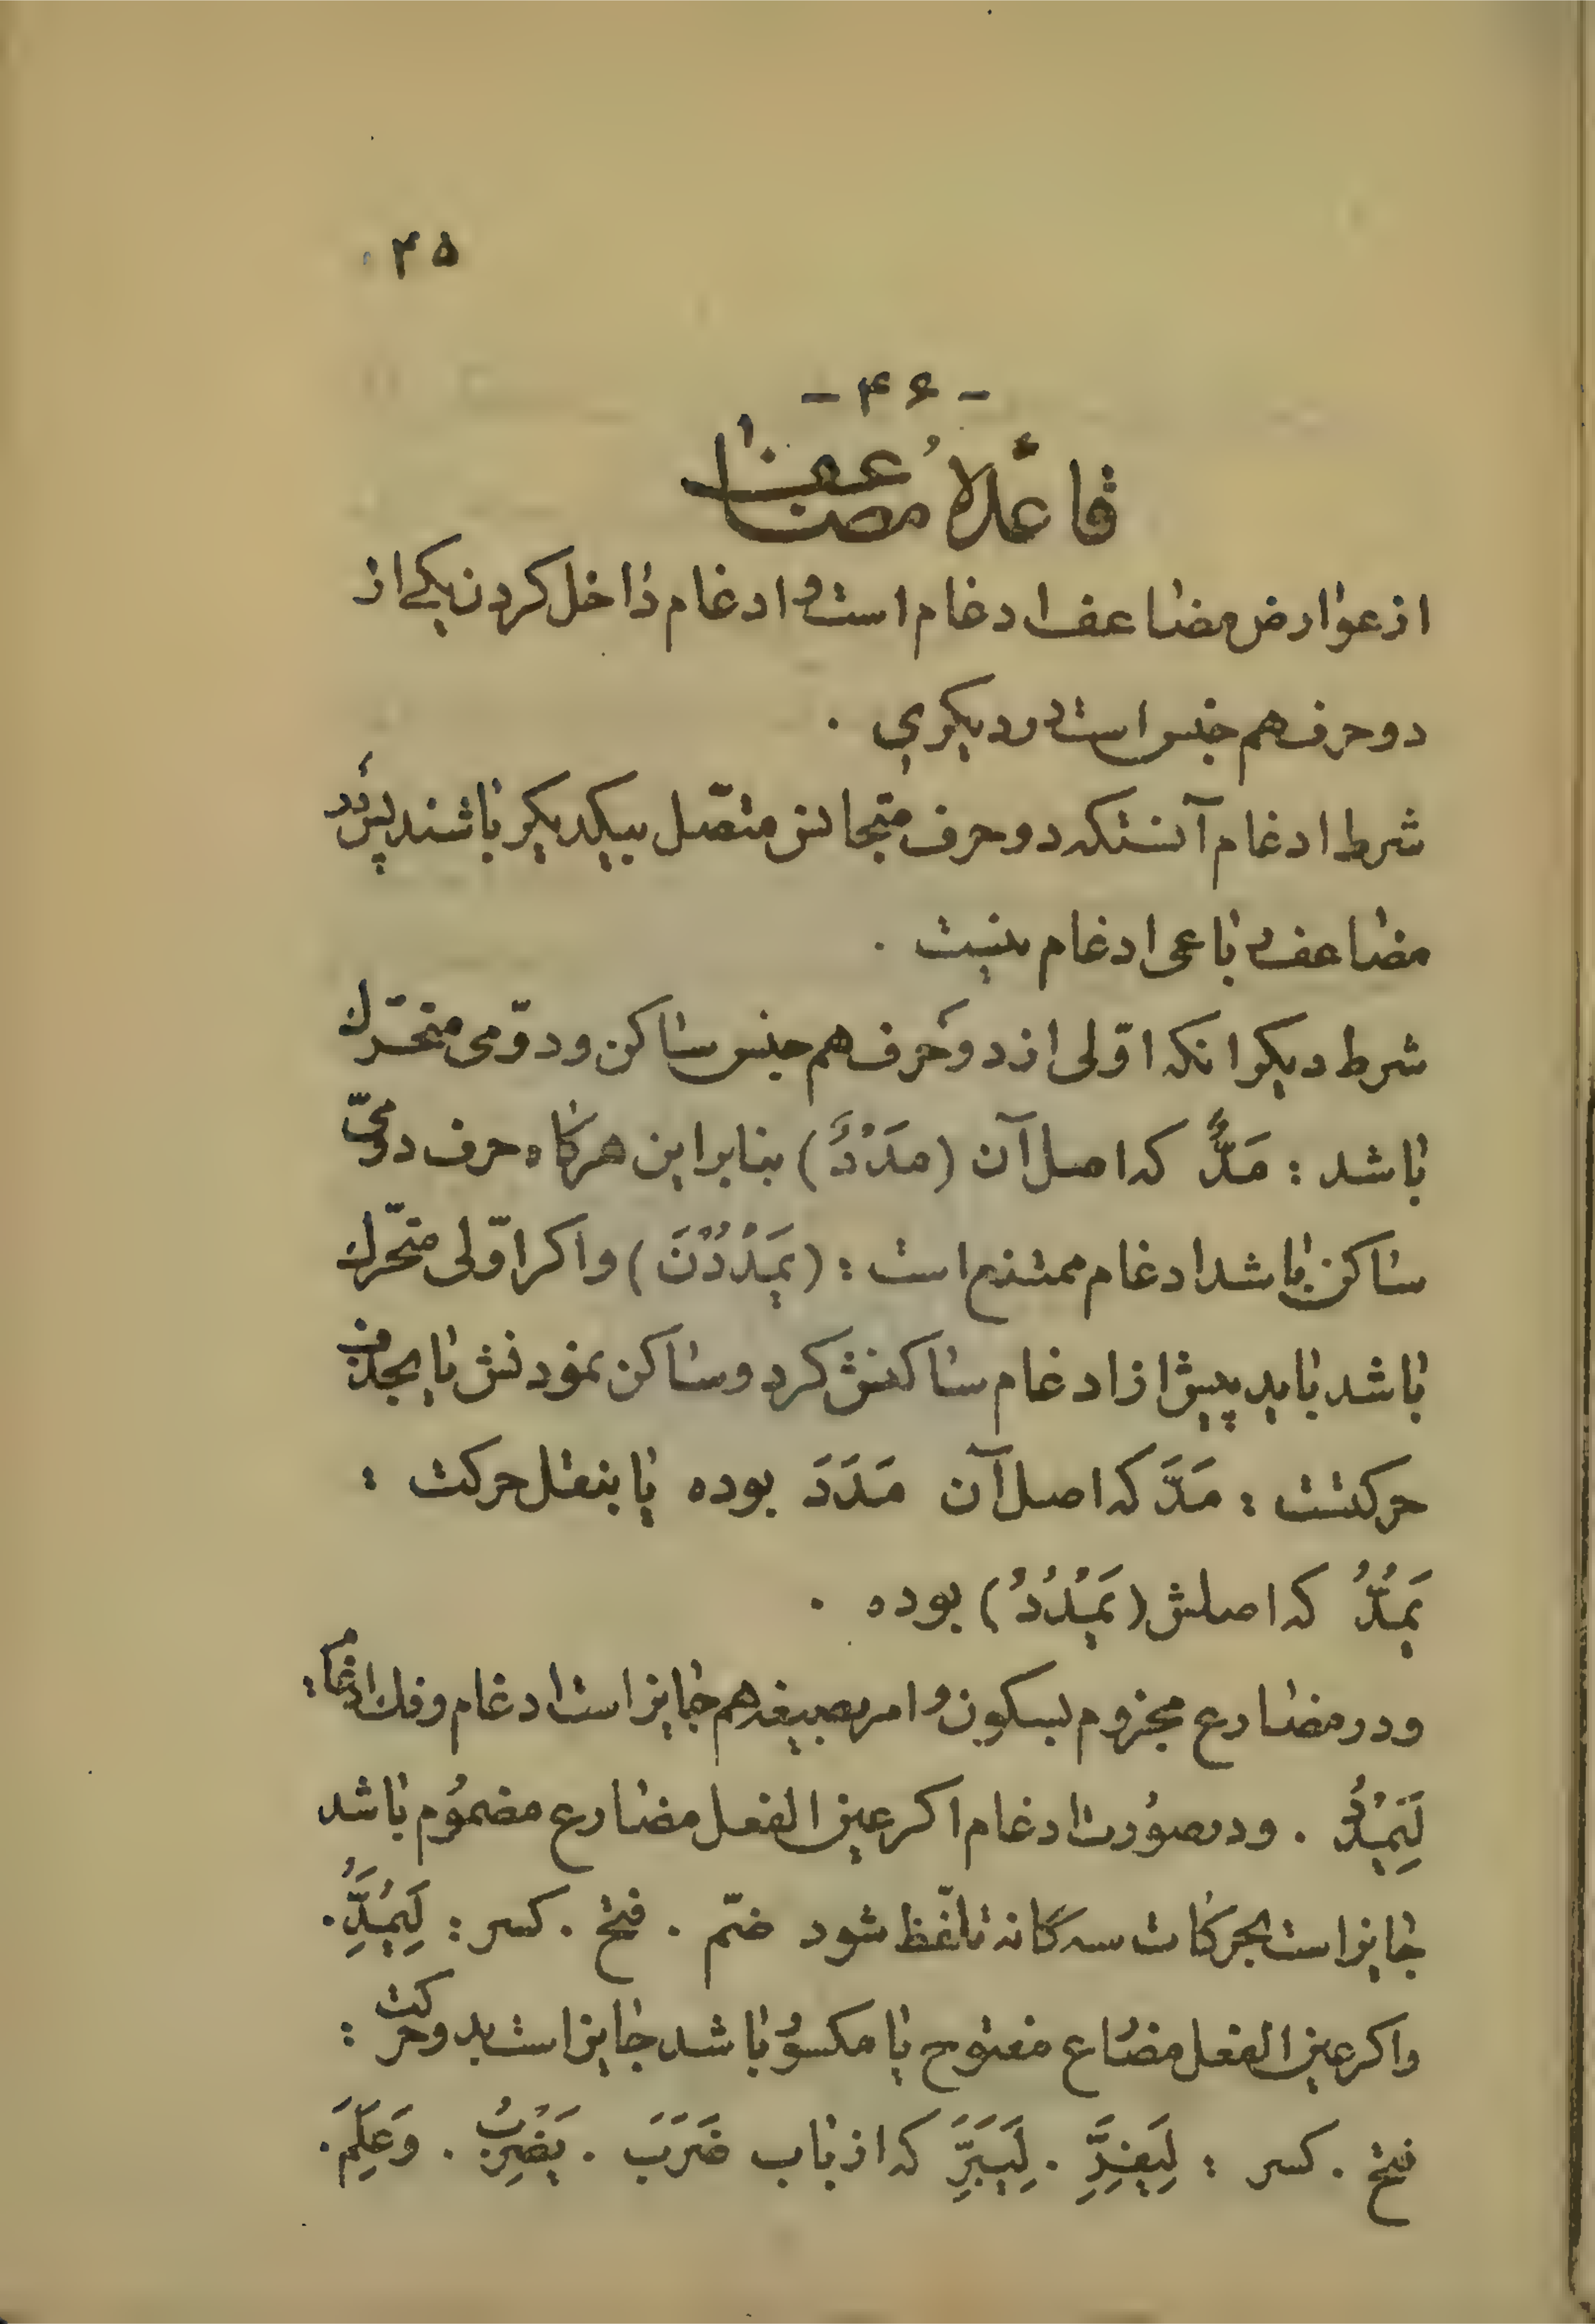 ۴۵
- ۴۶ -
قاعدهٔ مضاعف
از عوارض مضاعف ادغام است و ادغام داخل کردن یکی از
دو حرف هم جنس است در دیکری .
شرط ادغام آنستکه دو حرف متجانس متّصل بیکدیکر باشند پس در
مضاعف رباعی ادغام نیست .
شرط دیکر انکه اوّلی از دو حرف هم جنس ساکن و دوّمی متحرّك
باشد : مَدٌّ که اصل آن (مَدْدٌ) بنابراین هرکاه حرف دوّمی
ساکن باشد ادغام ممتنع است : (یَمْدُدْنَ) و اکر اوّلی متحّرك
باشد باید پیش از ادغام ساکنش کرد و ساکن نمودنش یا بحذف
حرکتست : مَدَّ که اصل آن مَدَدَ بوده یا بنقل حرکت :
یَمُدُّ که اصلش (یَمْدُدُ) بوده .
و در مضارع مجزوم بسکون و امر بصیغه هم جایز است ادغام و فك ادغام :
لِیَمْدُدْ . و در صورت ادغام اکر عین الفعل مضارع مضموم باشد
جایز است بحرکات سه کانه تلّفظ شود ضّم . فتح . کسر : لِیَمُدَُِّ .
و اکر عین الفعل مضارع مفتوح یا مکسور باشد جایز است بدو حرکت :
فتح . کسر : لِیَفِرَِّ . لِیَبَرَِّ که از باب ضَرَبَ . یَضْرِبُ . وَ عَلِمَ .